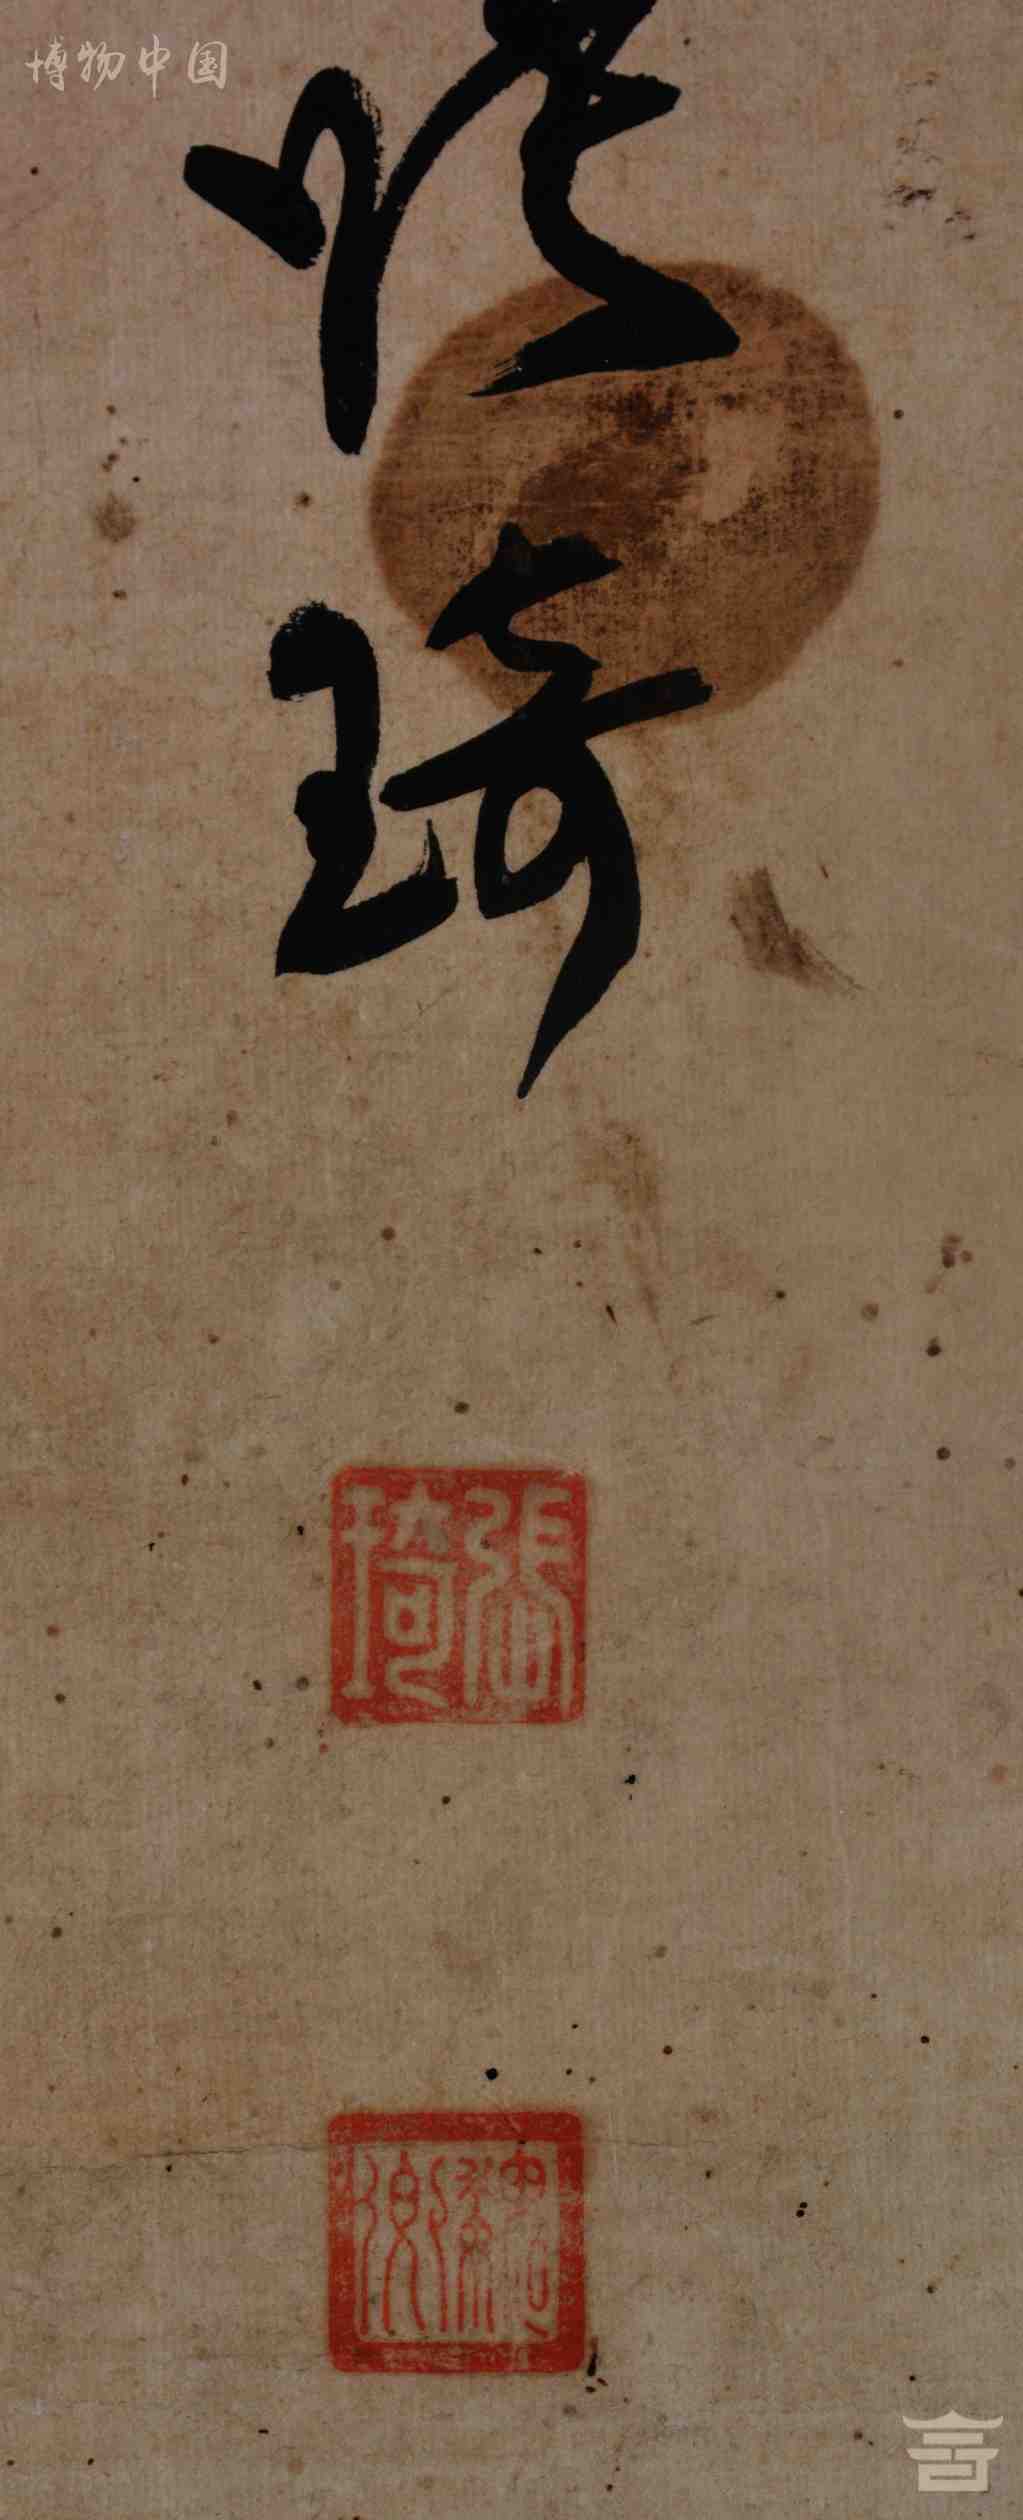 博物中国
張琦
張琦